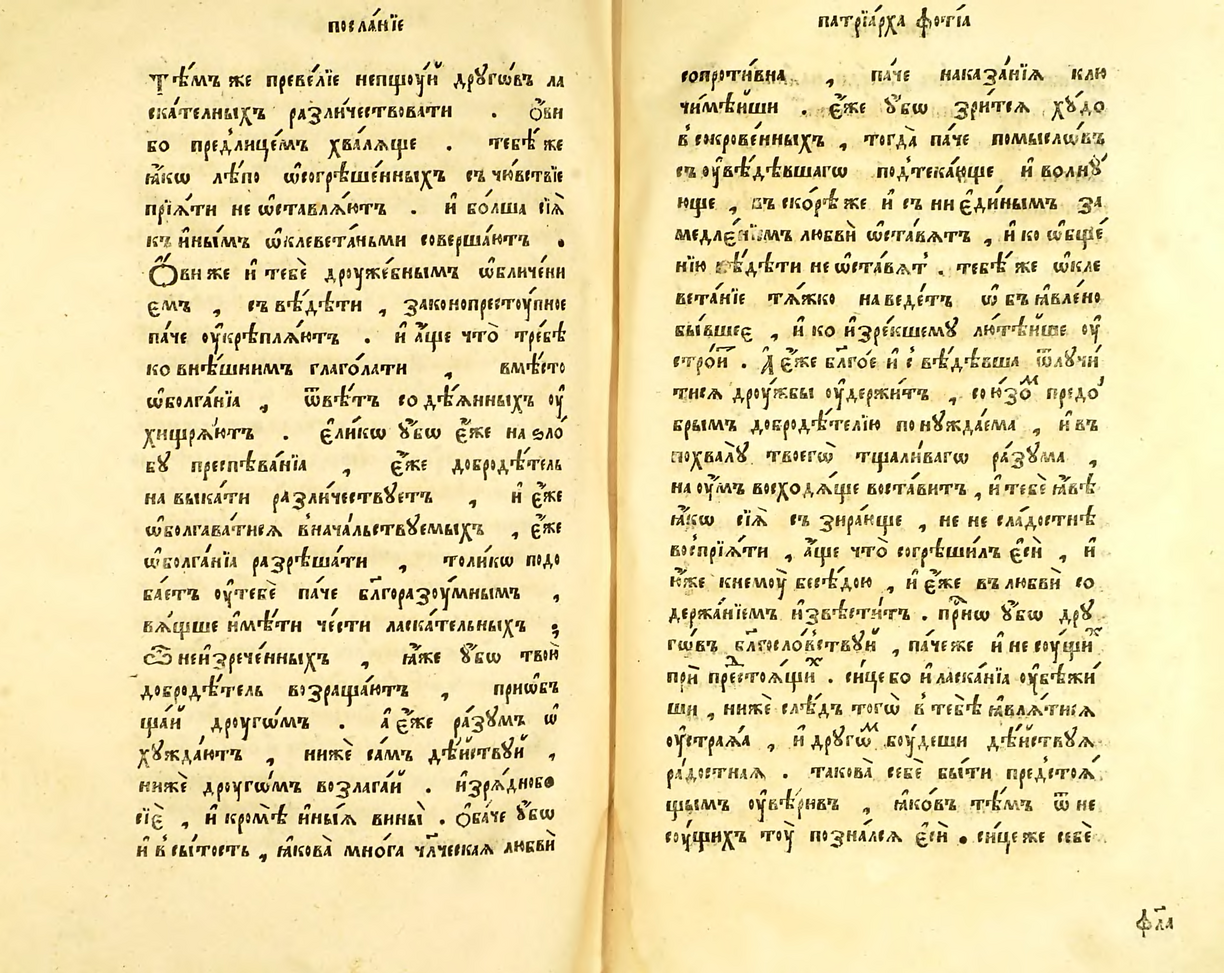 посла́нїе
Тѣ́мъ же преве́лїе непщꙋ́й дрꙋ́гѡвъ ла
ска́телныхъ разли́чествовати . ѻ҆́ви
бо предлице́мъ хва́лѧще . тебѣ́ же
ꙗ҆́кѡ лѣ́по ѡ҆согрѣше́нныхъ съчю́вствїе
прїѧ́ти не ѡ҆ставлѧ́ютъ . и҆ бо́лша сїѧ̀
къ и҆ны́мъ ѡ҆клевета́ньми соверша́ютъ .
Ѻ҆́ви же и҆ тебѐ дроуже́бнымъ ѡ҆бличе́ни
емъ , съвѣ́дѣти , законопрестоу́пное
па́че оу҆крѣплѧ́ютъ . и҆ а҆́ще что̀ тре́бѣ
ко внѣ́шнимъ глаго́лати , вмѣ́сто
ѡ҆болга́нїа , ѿвѣ́тъ содѣ́ѧнныхъ оу҆
хищрѧ́ютъ . є҆ли́кѡ ꙋ҆́бѡ є҆́же на ѕло́
бꙋ преспѣва́нїа , є҆́же добродѣ́тель
навыка́ти разли́чествꙋетъ , и҆ є҆́же
ѡ҆болгава́тисѧ внача́льствꙋемыхъ , є҆́же
ѡ҆болга́нїа разрѣша́ти , толи́кѡ подо
ба́етъ оу҆тебѐ па́че бл҃горазоу́мнымъ ,
вѧ́щше и҆мѣ́ти че́сти ласка́тельныхъ ;
Ѿ неи҆зрече́нныхъ , ꙗ҆́же ꙋ҆́бѡ твою̀
добродѣ́тель возраща́ютъ , приѡ҆бъ
ща́й дроу́гѡмъ . а҆ є҆́же ра́зꙋмъ ѡ҆
хꙋжда́ютъ , нижѐ са́мъ дѣ́йствꙋй ,
нижѐ дроу́гѡмъ возлага́й . и҆зрѧ́днобо
сїѐ , и҆ кро́мѣ и҆ны́ѧ вины̀ . ѻ҆ба́че ꙋ҆́бѡ
и҆ в сы́тость , ꙗ҆кова̀ мно́га чл҃ческаѧ любвѝ
патрїа́рха фо́тїа
сопроти́вна , па́че наказа́нїѧ клю
чи́мѣйши . є҆́же ꙋ҆́бѡ зри́тсѧ хꙋ́до
в сокрове́нныхъ , тогда̀ па́че помыслѡ́въ
съоу҆вѣ́дѣвшагѡ подтека́юще и҆ волнꙋ́
юще , въ ско́рѣ же и҆ съ ни є҆ди́нымъ за
медле́нїемъ любвѝ ѡ҆ста́вѧтъ , и҆ ко ѡ҆бще́
нїю вѣ́дѣти не ѡ҆ста́вѧт . тебѣ́ же ѡ҆кле
вета́нїе тѧ́жко наведе́тъ ѡ҆бъꙗвле́но
бы́вшее , и҆ ко и҆зре́кшемꙋ лютѣ́йше оу҆
стро́и . А҆ є҆́же бл҃го́е и҆ свѣ́дѣвша ѿлꙋчи́
тисѧ дроу́жбы оу҆держи́тъ , сою́зом предо́
брымъ добродѣ́телїю понꙋжда́ема , и҆ въ
похва́лꙋ твоегѡ̀ тщали́вагѡ ра́зꙋма ,
на оу҆́мъ восходѧ́ще воста́витъ , и҆ тебѐ ꙗ҆́вѣ
ꙗ҆́кѡ сїѧ̀ съзира́юще , не не сла́достнѣ
воспрїѧ́ти , а҆́ще что̀ согрѣши́лъ є҆сѝ , и҆
ю҆́же кнемоу̀ бесѣ́дою , и҆ є҆́же въ любвѝ со
держа́нїемъ и҆звѣсти́тъ . при́снѡ ꙋ҆́бѡ дрꙋ
гѡ́въ бл҃гослове́ствꙋй , па́чеже и҆ не соу́щих
при́ предстоѧ́щих . си́це бо и҆ ласка́нїа оу҆бѣжи́
ши , нижѐ слѣ́дъ тогѡ̀ в тебѣ̀ ꙗ҆влѧ́тисѧ
оу҆стра́ѧѧ , и҆ дрꙋ́гѡм боу́деши дѣ́йствꙋѧ
ра́достнаѧ . такова̀ себѐ бы́ти предстоѧ́
щымъ оу҆вѣ́ривъ , ꙗ҆ко́въ тѣ́мъ ѿ не
соу́щихъ тоу̀ позна́лсѧ є҆сѝ . си́це же себѐ
фл҃а